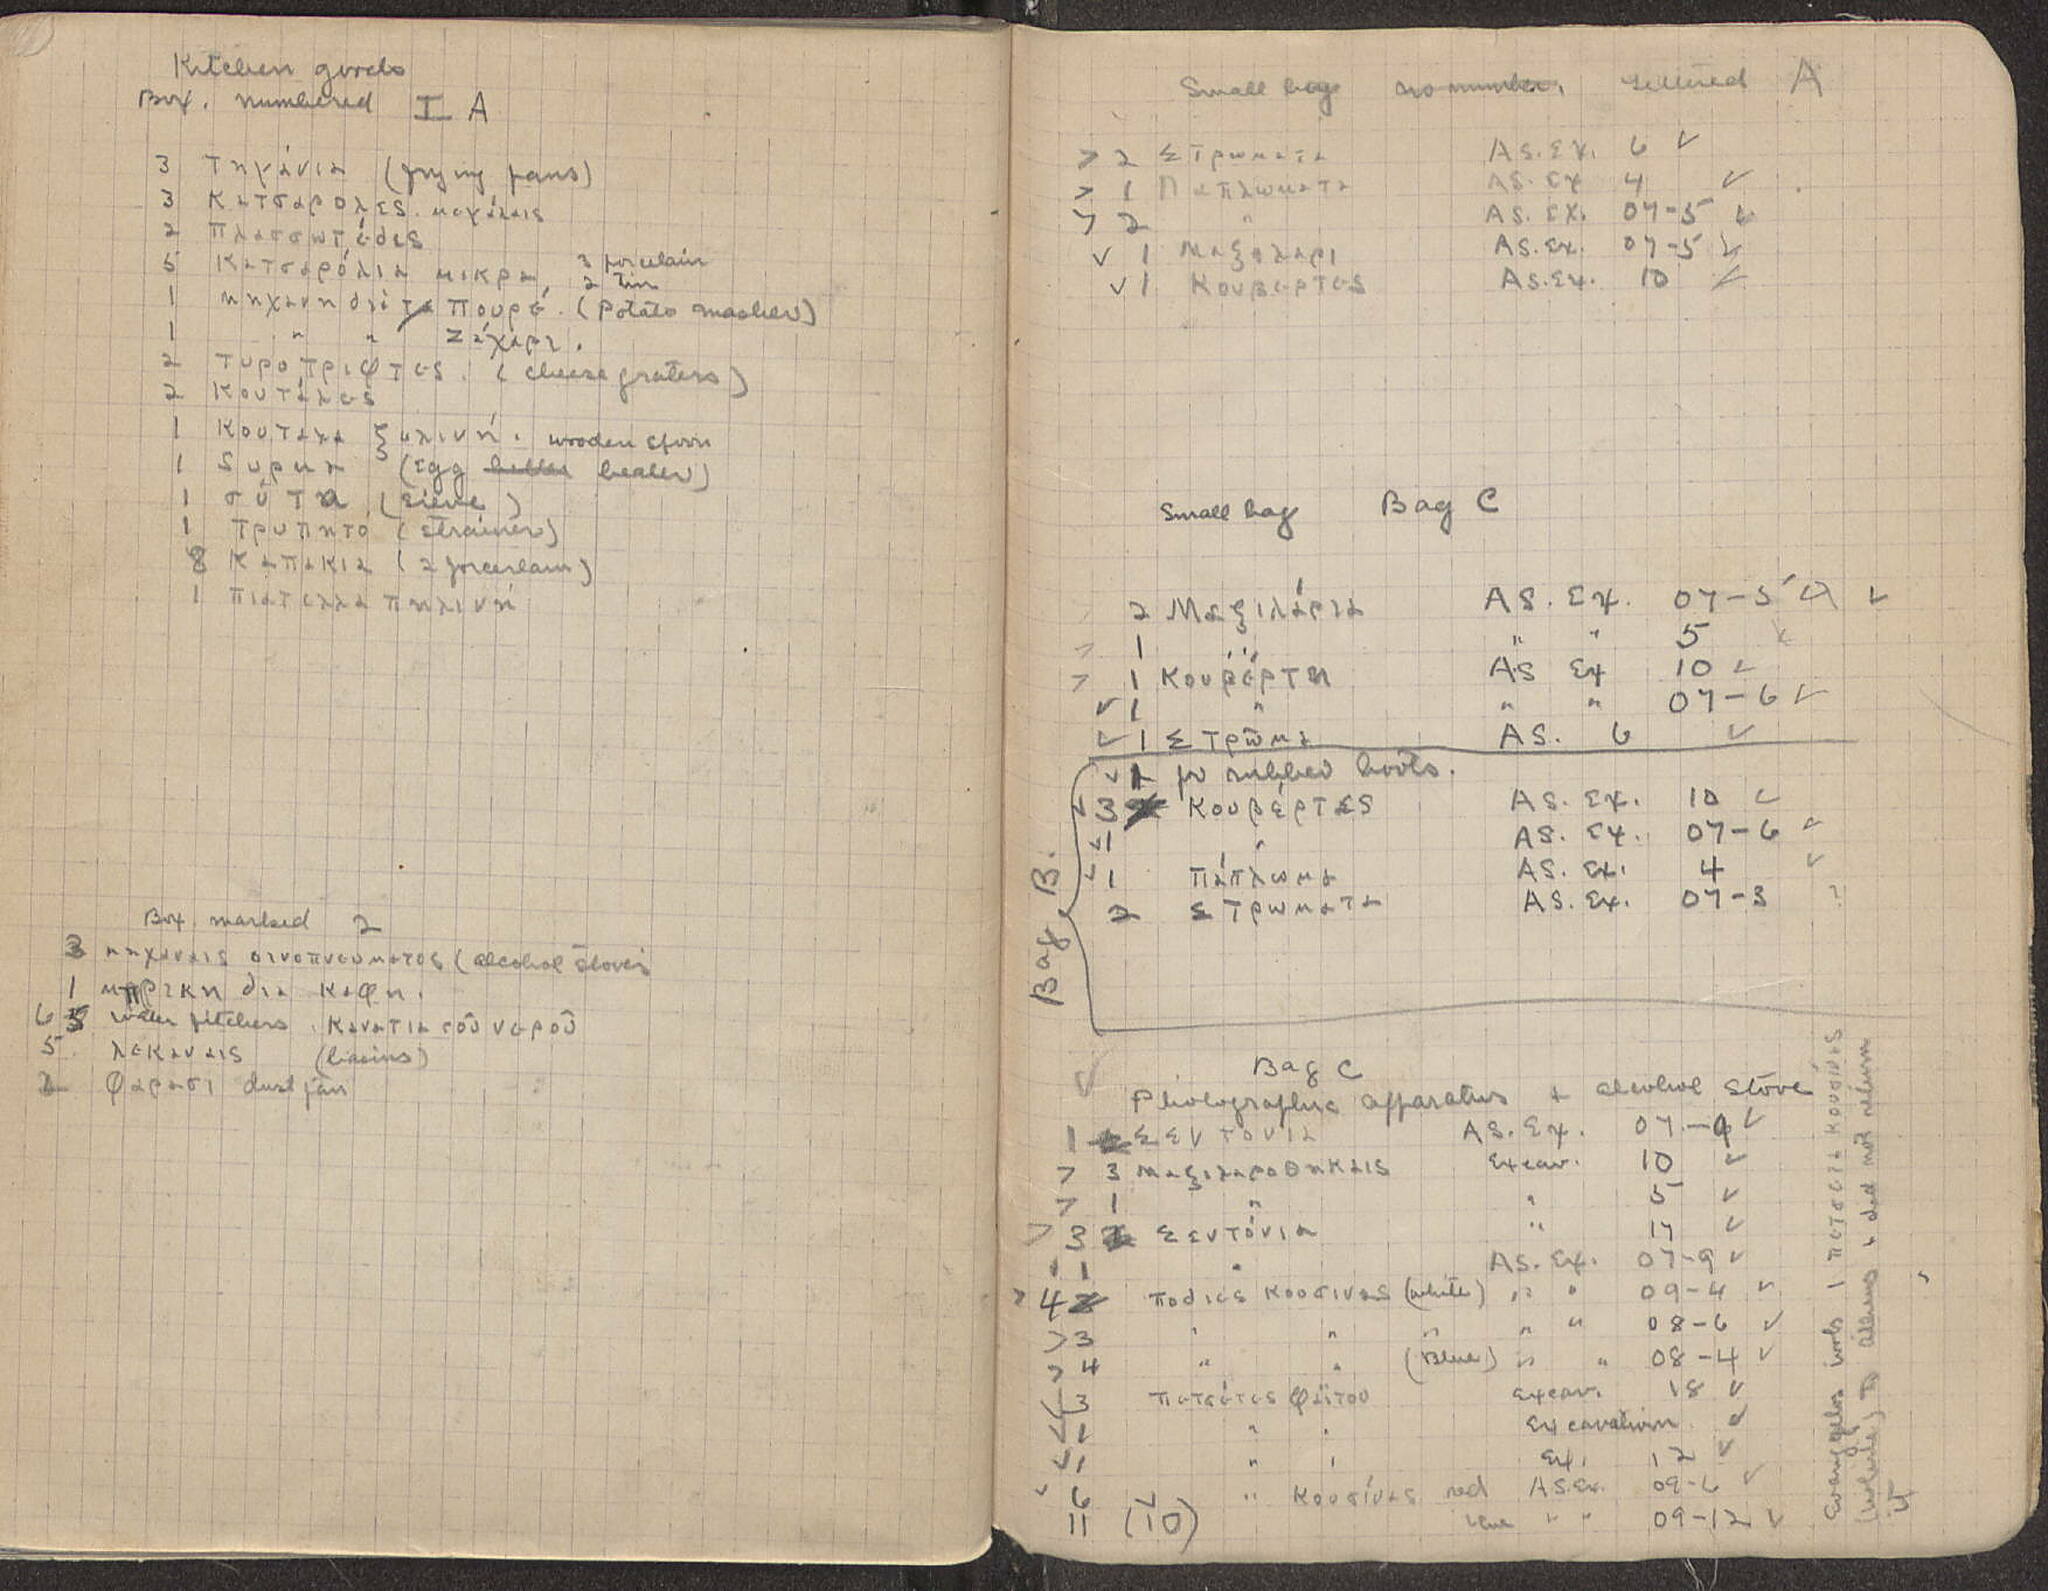 Kitchen goods
Box. numbered I A
3 Τηγάνια (frying pans)
3 Κατσαρολες. μεγάλαις
2 Πλασσωτέδες
5 Κατσαρόλια μικρα, 3 porcelain
2 tin
1 μηχανη διὰ Πουρέ. (Potato masher)
1 " " Ζάχαρι.
2 Τυροτριφτες. (cheese graters)
2 Κουτάλες
1 Κουταλα ξυλινή. wooden spoon
1 Συρμα (Egg beater)
1 σύτα (sieve)
1 Τρυπητό (strainer)
8 Καπακια (2 porcelain)
1 πιατελλα πηλινή
Box marked 2
3 μηχαναις οινοπνευματος (alcohol stoves
1 μπρικη δια καφη.
6 5 water pitchers. Κανατια τοῦ νεροῦ
5 λεκαναις (basins)
2 φαρασι dust pan
Small bag no number. lettered A
> 2 Στρωματα As. Ex. 6 ✓
> 1 Παπλωματα As. Ex 4 ✓
> 2 " As. Ex. 07-5 ✓
✓ 1 Μαξιλαρι As. Ex. 07-5 ✓
✓ 1 Κουβερτες As. Ex. 10 ✓
Small bag Bag C
2 Μαξιλάρια As. Ex. 07-5 ✓
> 1 " " " 5 ✓
> 1 Κουβέρτη As Ex 10 ✓
✓ 1 " " " 07-6 ✓
✓ 1 Στρῶμα As. 6 ✓
Bag B.
✓ 1 pr rubber boots.
✓ 3 Κουβέρτες As. Ex. 10 ✓
✓ 1 " As. Ex. 07-6 ✓
✓ 1 πάπλωμα As. Ex. 4 ✓
2 Στρωματα As. Ex. 07-3 ?
Bag C
✓ Photographic apparatus + alcohol stove
1 Σεντονια As. Ex. 07-9 ✓
> 3 Μαξιλαροθηκαις Excav. 10 ✓
> 1 " " 5 ✓
> 3 Σεντόνια " 17 ✓
1 " As. Ex. 07-9 ✓
> 4 ποδιες κουσινας (white) " " 09-4 ✓
> 3 " " " " " 08-6 ✓
> 4 " " (Blue) " " 08-4 ✓
3 πετσέτες φαϊτου Excav. 18 ✓
✓ 1 " " Excavation ✓
✓ 1 " " Ex. 12 ✓
✓ 6 " κουσίνας red As. Ex. 09-6 ✓
11 (10) blue " " 09-12 ✓
Evangelos took 1 πετσετα κουσίνας
(white) to Athens & did not return
it